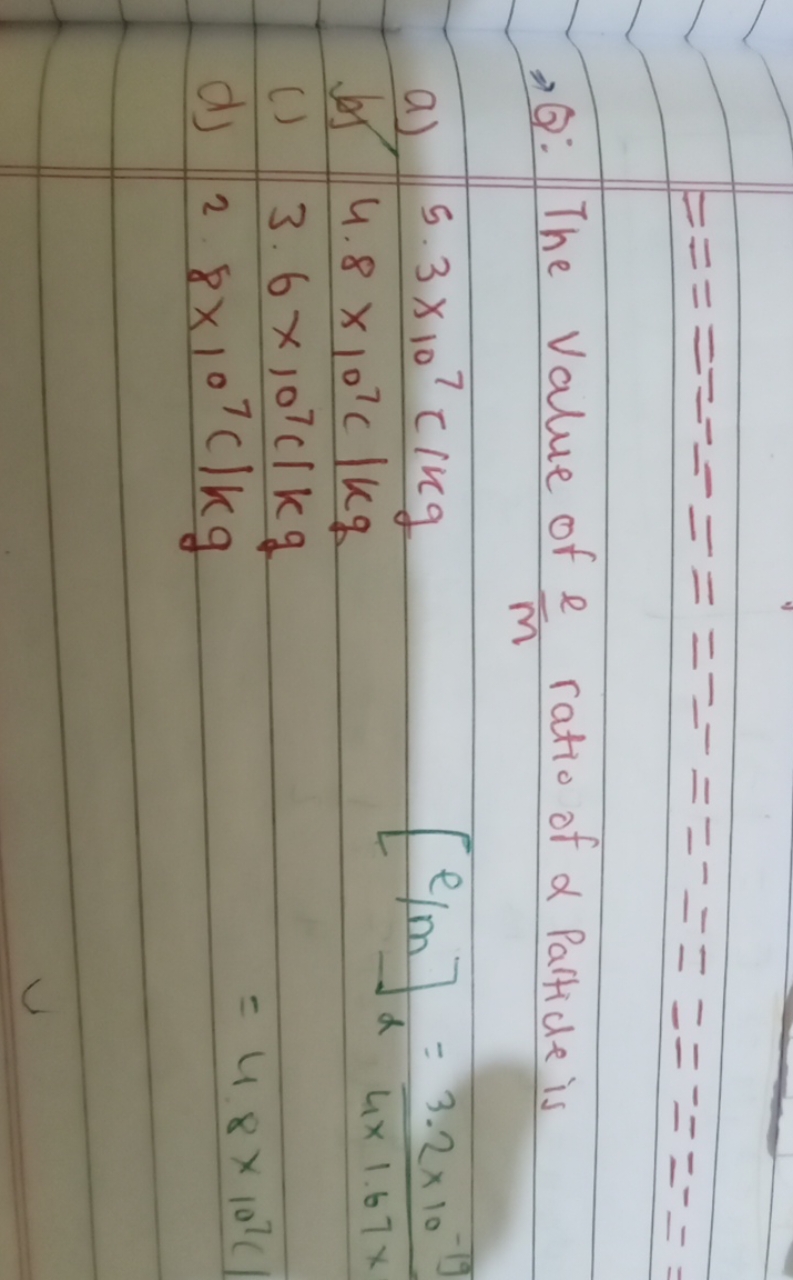 ⇒Q: The value of e/m ratio of α Particle is
a) 5.3×10⁷ C/kg
b) 4.8×10⁷C/kg
c) 3.6×10⁷C/kg
d) 2.8×10⁷C/kg
[e/m]α = 3.2×10⁻¹⁹
4×1.67×
= 4.8×10⁷C/